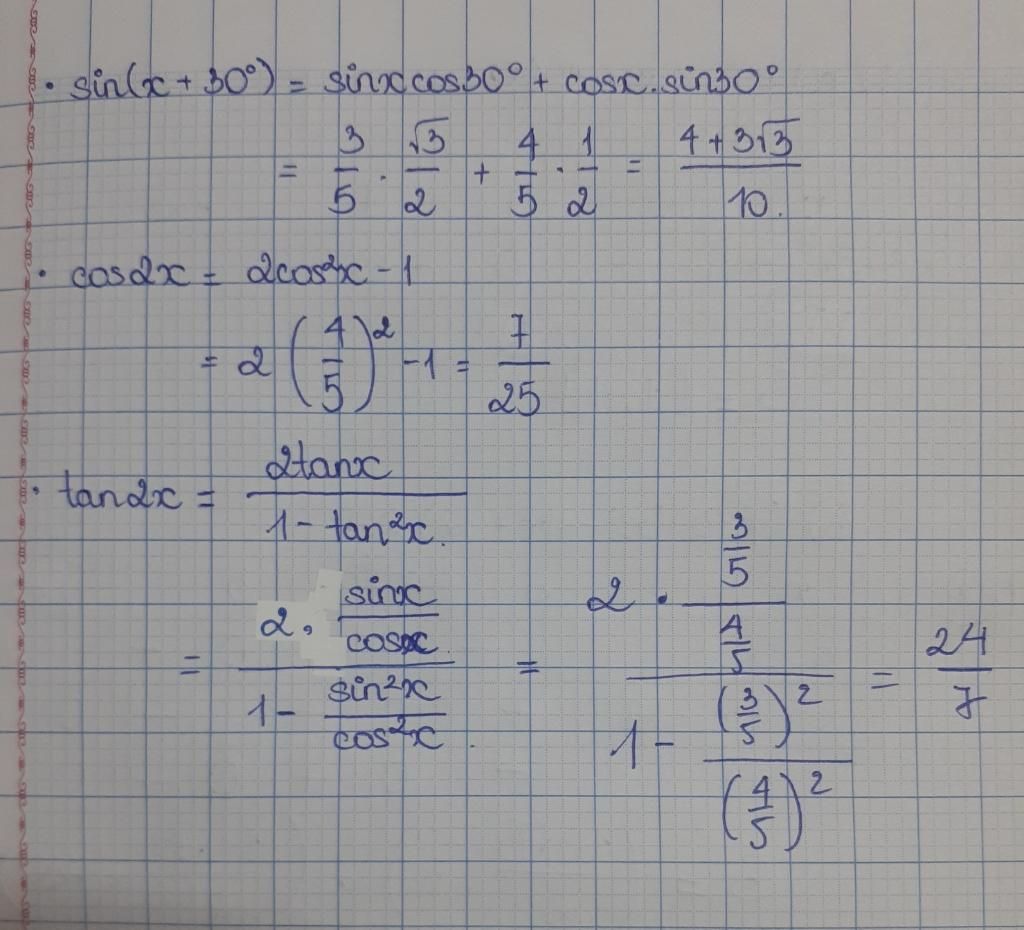 • sin(x + 30°) = sinx cos30° + cosx . sin30°
= 3/5 . √3/2 + 4/5 . 1/2 = (4 + 3√3)/10.
• cos2x = 2cos²x - 1
= 2 (4/5)² - 1 = 7/25
• tan2x = 2tanx/(1 - tan²x).
= (2. sinx/cosx)/(1 - sin²x/cos²x). = (2 . (3/5)/(4/5))/(1 - (3/5)²/(4/5)²) = 24/7